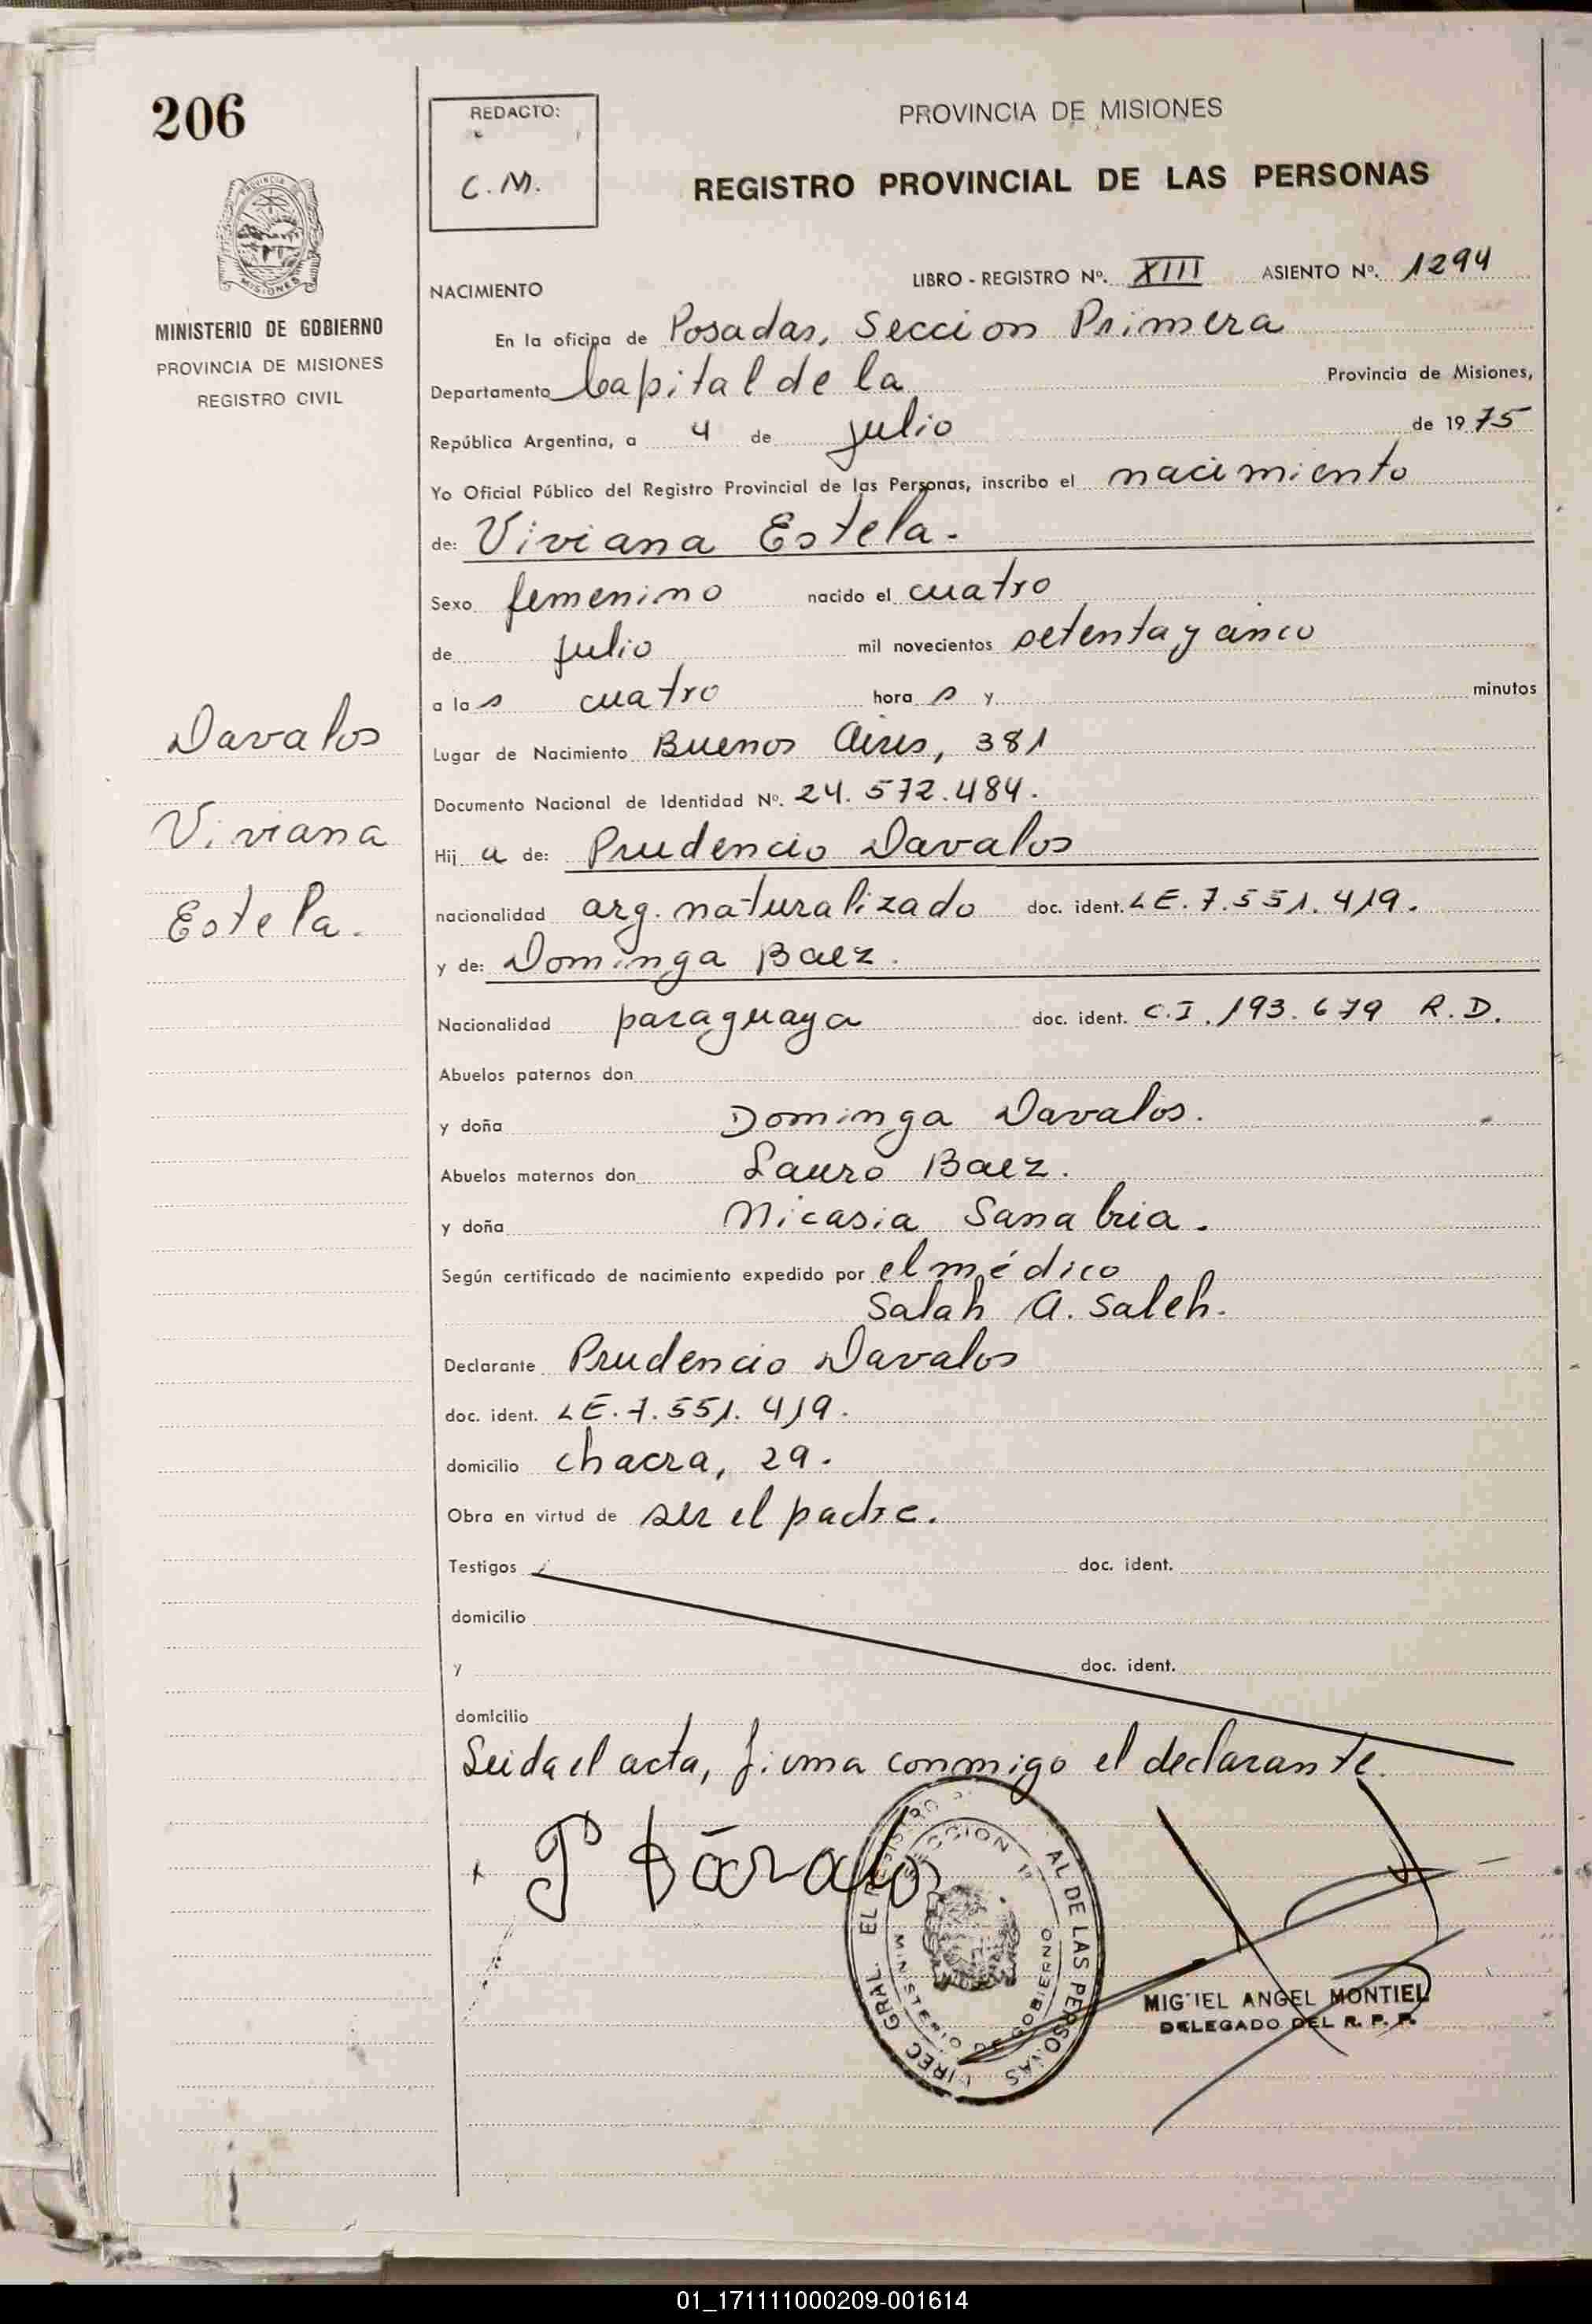 206
MINISTERIO DE GOBIERNO
PROVINCIA DE MISIONES
REGISTRO CIVIL
Davalos
Viviana
Estela.
REDACTO:
C.M.
PROVINCIA DE MISIONES
REGISTRO PROVINCIAL DE LAS PERSONAS
NACIMIENTO LIBRO - REGISTRO Nº. XIII ASIENTO Nº. 1294
En la oficina de Posadas, Seccion Primera
Departamento Capital de la Provincia de Misiones,
República Argentina, a 4 de julio de 1975
Yo Oficial Público del Registro Provincial de las Personas, inscribo el nacimiento
de: Viviana Estela.
Sexo femenino nacido el cuatro
de julio mil novecientos setenta y cinco
a las cuatro horas y minutos
Lugar de Nacimiento Buenos Aires, 381
Documento Nacional de Identidad Nº. 24.572.484.
Hija de: Prudencio Davalos
nacionalidad arg. naturalizado doc. ident. LE. 7.551.419.
y de: Dominga Baez.
Nacionalidad paraguaya doc. ident. C.I. 193.679 R.D.
Abuelos paternos don
y doña Dominga Davalos.
Abuelos maternos don Lauro Baez.
y doña Nicasia Sanabria.
Según certificado de nacimiento expedido por el médico
Salah A. Saleh.
Declarante Prudencio Davalos
doc. ident. LE. 7.551.419.
domicilio chacra, 29.
Obra en virtud de ser el padre.
Testigos doc. ident.
domicilio
y doc. ident.
domicilio
Leida el acta, firma conmigo el declarante.
P Dávalos
SECCION 1ª
MINISTERIO DE GOBIERNO
AL DE LAS PERSONAS
MIGUEL ANGEL MONTIEL
DELEGADO DEL R. P. P.
01_171111000209-001614